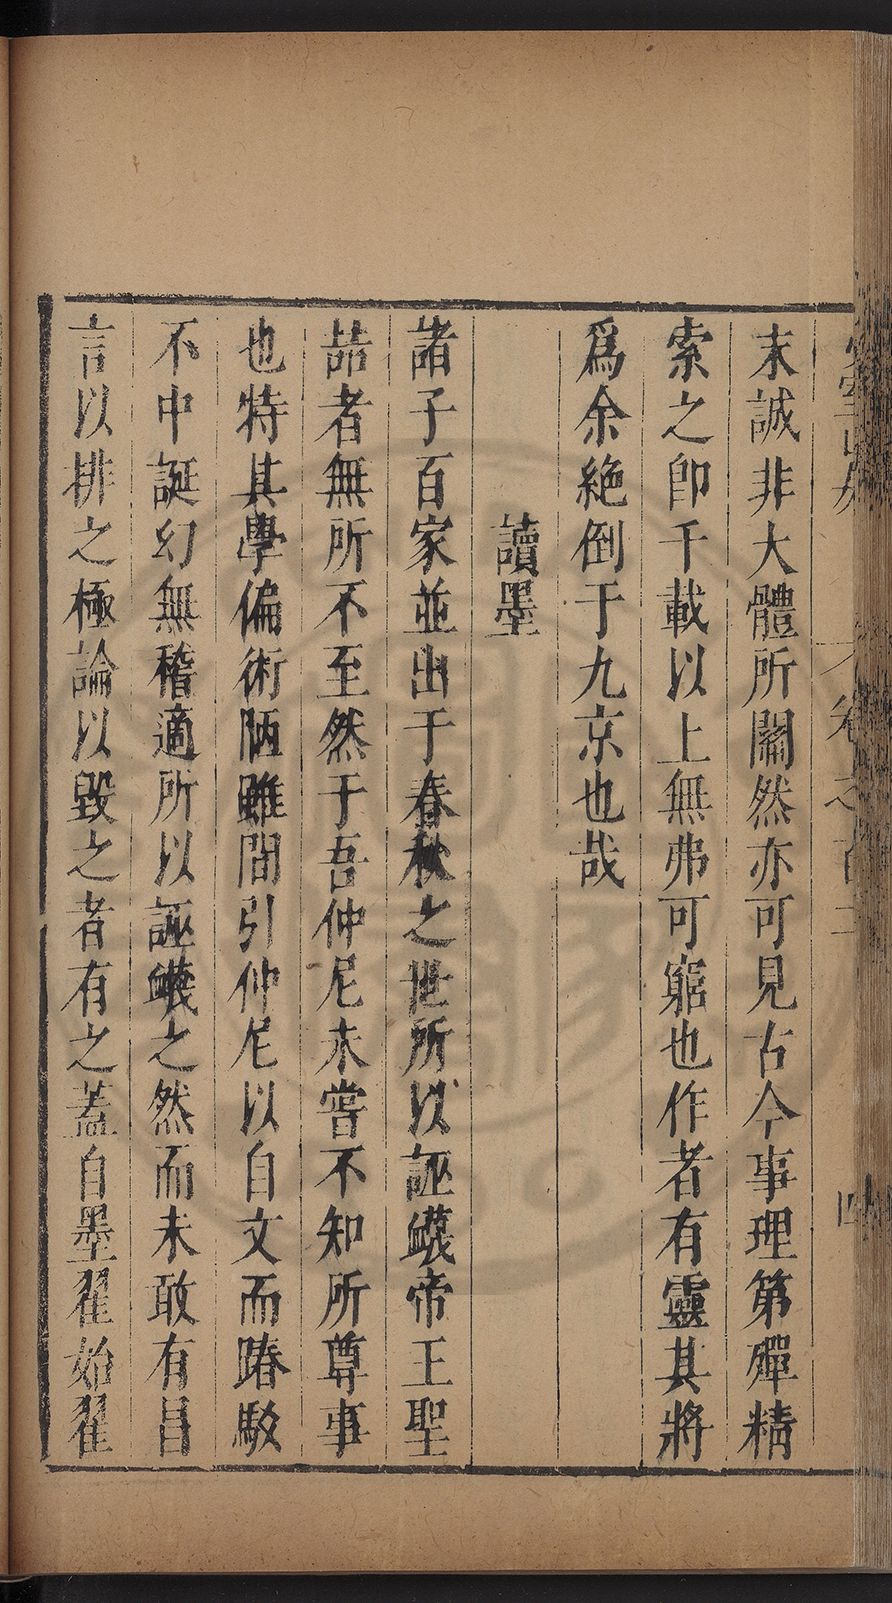 末誠非大體所關然亦可見古今事理第殫精
索之卽千載以上無弗可窮也作者有靈其將
爲余絶倒于九京也哉
讀墨
諸子百家並出于春秋之世所以誣衊帝王聖
喆者無所不至然于吾仲尼未嘗不知所尊事
也特其學偏術陋雖間引仲尼以自文而踳駁
不中誕幻無稽適所以誣衊之然而未敢有昌
言以排之極論以毀之者有之蓋自墨翟始翟